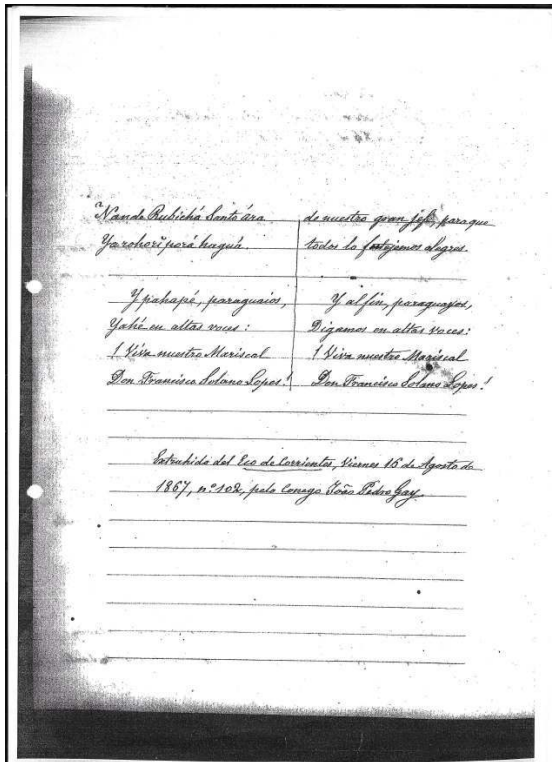 Ñande Rubichá Santo ára
Yarohorĭ porá haguá.
Ypahapé, paraguaios,
Yahé en altas voces:
! Viva nuestro Mariscal
Don Francisco Solano Lopes!
de nuestro gran jefe, para que
todos lo festejemos alegres.
Y al fin, paraguayos,
Digamos en altas voces:
! Viva nuestro Mariscal
Don Francisco Solano Lopes!
Extrahido del Eco de Corrientes, Viernes 16 de Agosto de
1867, nº 102, pelo Conego João Pedro Gay.